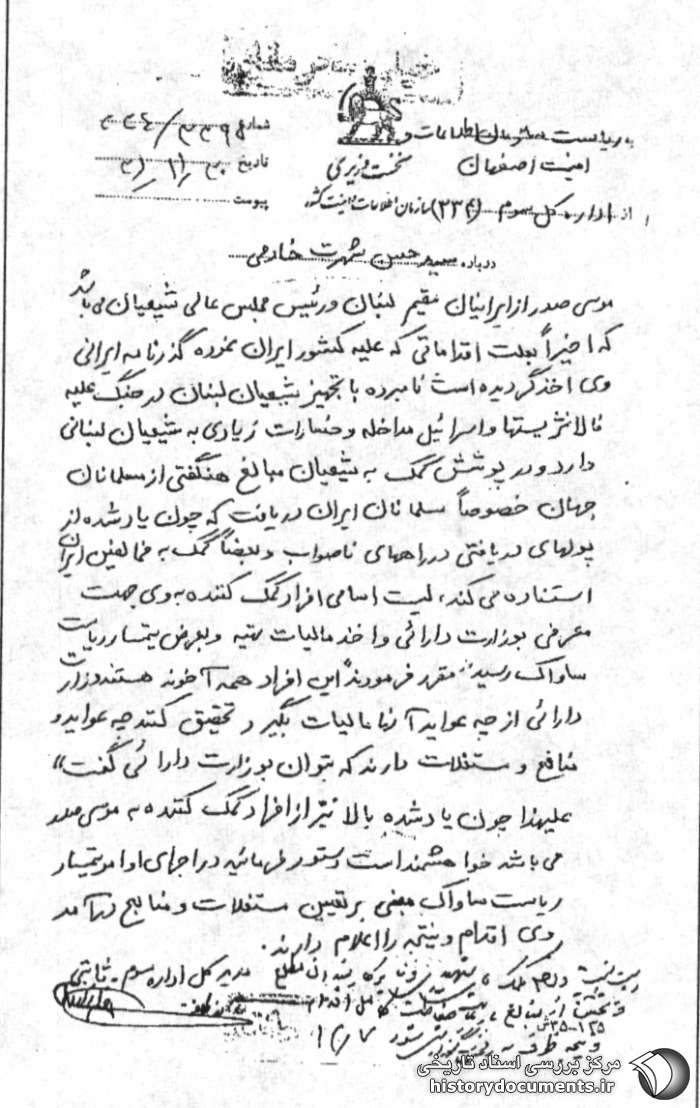 به ریاست سازمان اطلاعات و
امنیت اصفهان
نخست وزیری
سازمان اطلاعات و امنیت کشور
از اداره کل سوم (۳۳۴)
شماره ۳۳۴/
تاریخ
پیوست
درباره سید حسن شهرت خادمی
موسی صدر از ایرانیان مقیم لبنان و رئیس مجلس عالی شیعیان می باشد
که اخیراً بعلت اقداماتی که علیه کشور ایران نموده گذرنامه ایرانی
وی اخذ گردیده است نامبرده با تجهیز شیعیان لبنان در جنگ علیه
فالانژیستها و اسرائیل مداخله و خسارات زیادی به شیعیان لبنانی
دارد و در پوشش کمک به شیعیان مبالغ هنگفتی از مسلمانان
جهان خصوصاً مسلمانان ایران دریافت که چون یاد شده از
پولهای دریافتی در راههای ناصواب و بعضاً کمک به مخالفین ایران
استفاده می کند، لیست اسامی افراد کمک کننده به وی جهت
معرفی بوزارت دارائی و اخذ مالیات تهیه و بعرض تیمسار ریاست
ساواک رسید مقرر فرمودند "این افراد همه آخوند هستند وزارت
دارائی از چه عواید آنها مالیات بگیرد تحقیق کنند چه عواید و
منافع و مستغلات دارند که بتوان بوزارت دارائی گفت"
علیهذا چون یاد شده بالا نیز از افراد کمک کننده به موسی صدر
می باشد خواهشمند است دستور فرمائید در اجرای اوامر تیمسار
ریاست ساواک مبنی بر تعیین مستغلات و منابع درآمد
وی اقدام و نتیجه را اعلام دارند.
مدیر کل اداره سوم - ثابتی
۱۲۵-۳۵ش
مرکز بررسی اسناد تاریخی
historydocuments.ir